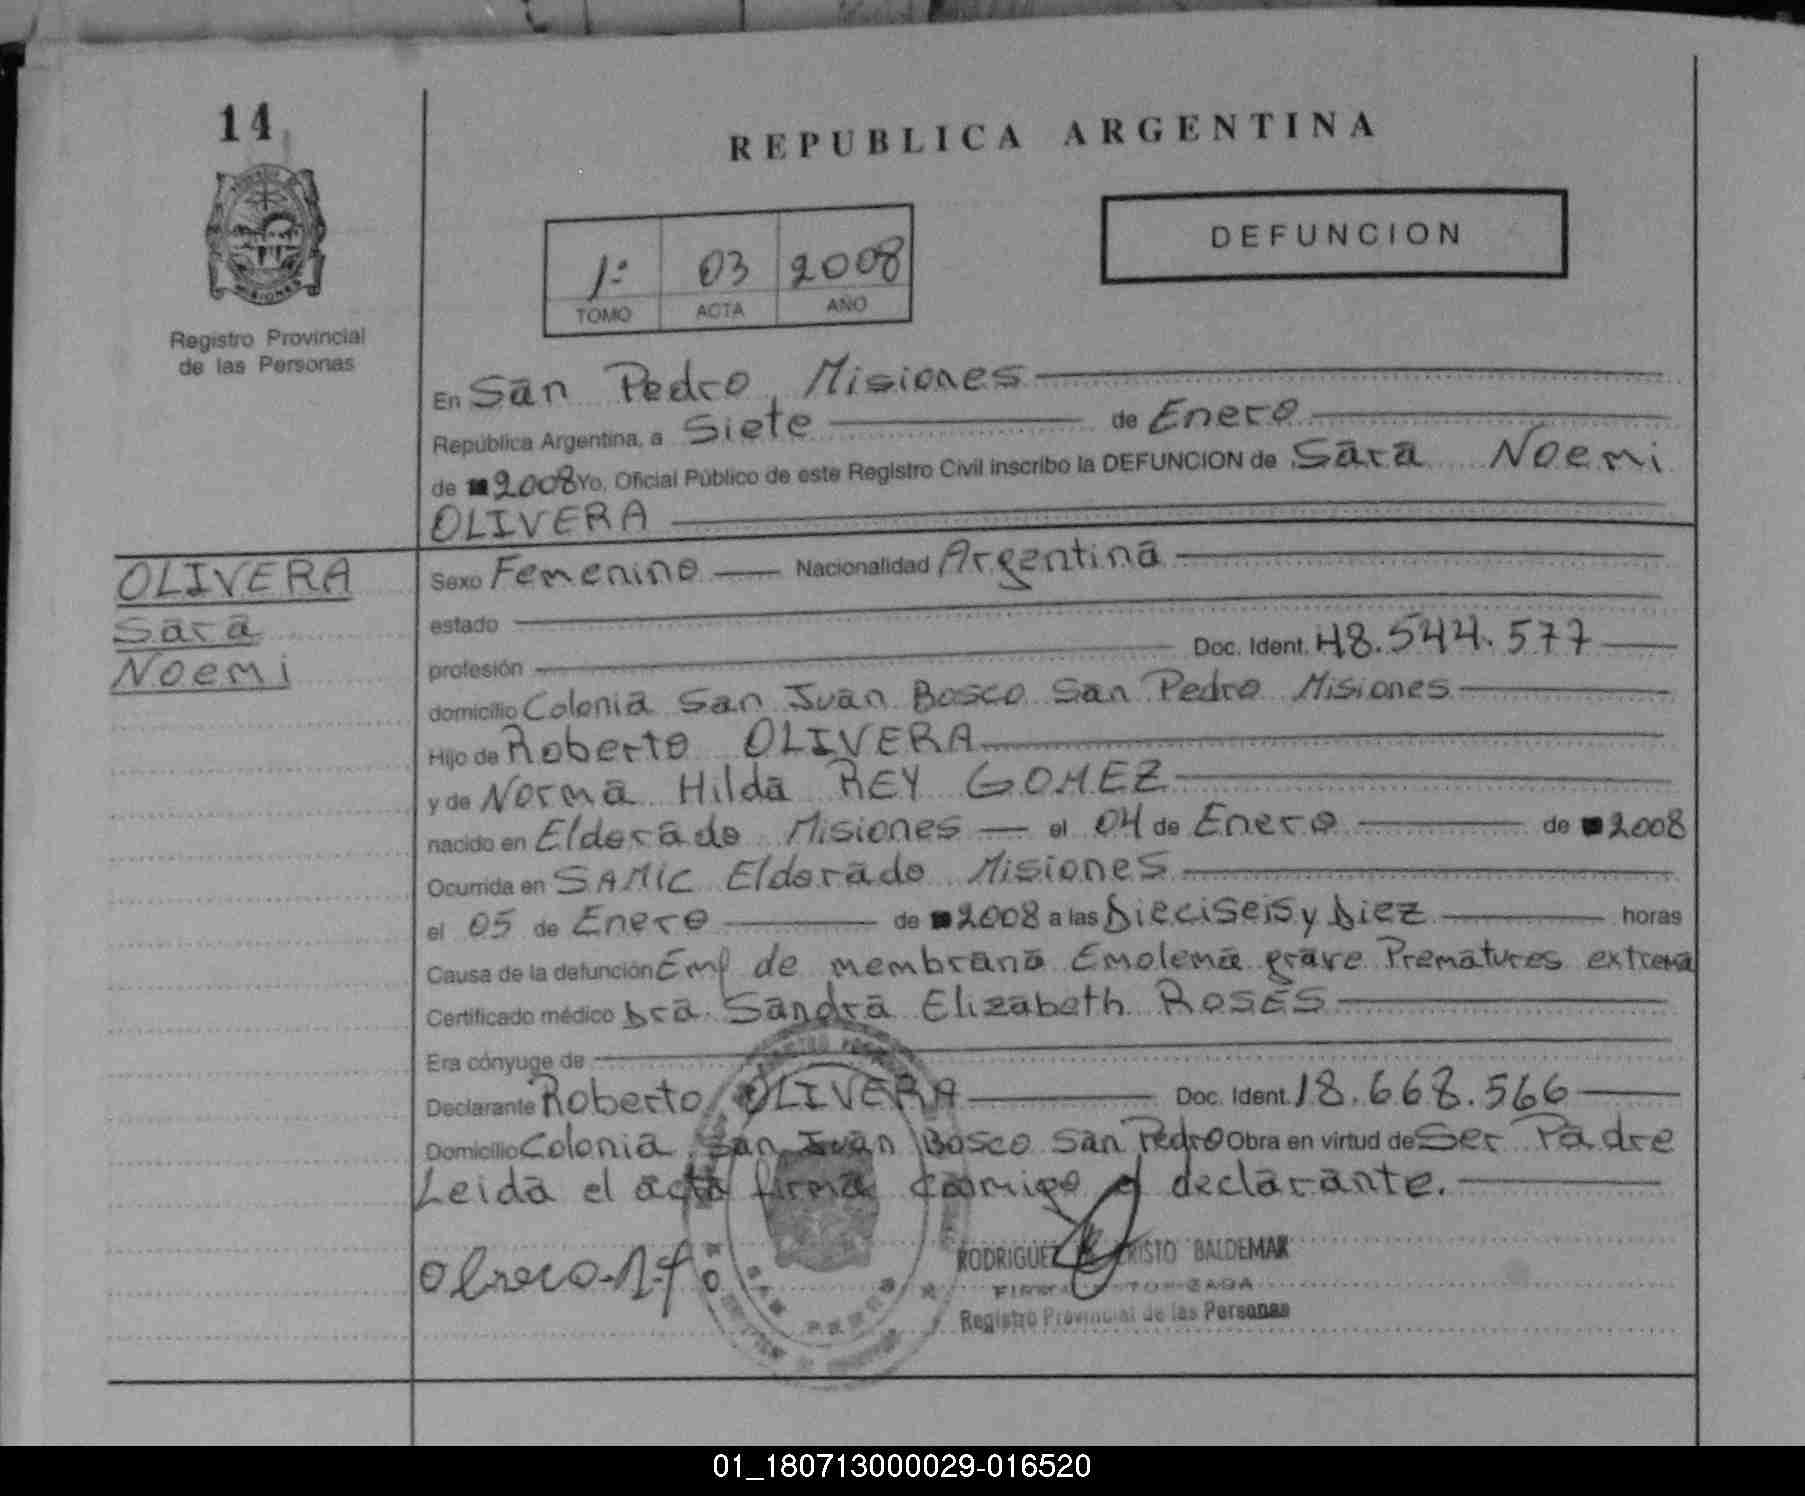 14
REPUBLICA ARGENTINA
DEFUNCION
1º 03 2008
TOMO ACTA AÑO
Registro Provincial
de las Personas
En San Pedro Misiones
República Argentina, a Siete de Enero
de 2008 Yo, Oficial Público de este Registro Civil inscribo la DEFUNCION de Sara Noemi
OLIVERA
OLIVERA
Sara
Noemi
Sexo Femenino Nacionalidad Argentina
estado
profesión Doc. Ident. 48.544.577
domicilio Colonia San Juan Bosco San Pedro Misiones
Hijo de Roberto OLIVERA
y de Norma Hilda REY GOMEZ
nacido en Eldorado Misiones el 04 de Enero de 2008
Ocurrida en SAMIC Eldorado Misiones
el 05 de Enero de 2008 a las Dieciseis y Diez horas
Causa de la defunción Emf de membrana Emolema grave Prematures extrema
Certificado médico Dra. Sandra Elizabeth ROSES
Era cónyuge de
Declarante Roberto OLIVERA Doc. Ident. 18.668.566
Domicilio Colonia San Juan Bosco San Pedro Obra en virtud de Ser Padre
Leida el acta firma conmigo el declarante.
RODRIGUEZ BALDEMAR
Registro Provincial de las Personas
01_180713000029-016520